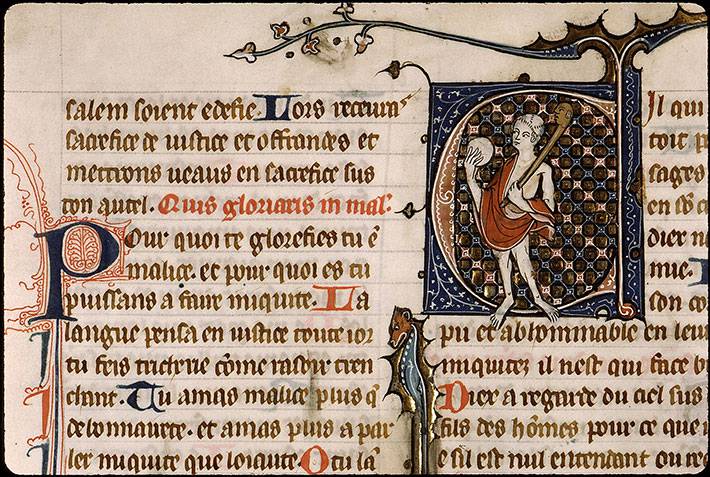 salem soient edefie. Lors receuras
sacrefice de iustice et offrandes et
metrons ueaus en sacrefice sus
ton autel. Quis gloriaris in mal.
Pour quoi te glorefies tu ē
malice. et pour quoi es tu
puissans a faire iniquite. La
langue pensa en iustice toute ior
tu feis tricherie cōme rasoir tren
chant. Tu amas malice plus q̄
debonnairete. et amas plus a par
ler iniquite que loiaute. O tu la
Il qui
toit p
sages
en sō c
dier n
nue.
son co
pu et abhominable en leur
iniquitez il nest qui face b
Diex a regarde du ciel sus
fils des hōmes pour ce que
e sil est nul entendant ou re